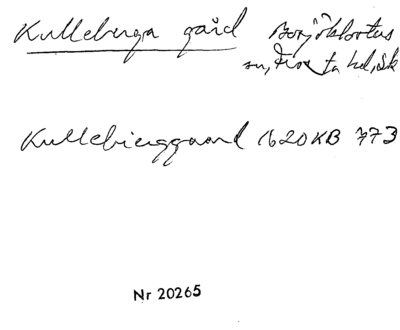 Kulleberga gård Bosjökloster
sn, Frosta hd, Sk
Kullebierggaard 1620 KB 773
Nr 20265